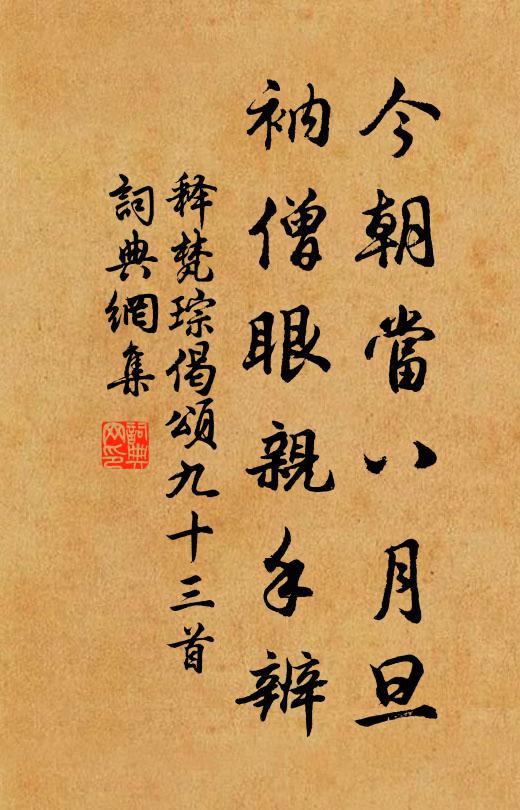 今朝當八月旦
衲僧眼親手辨
释梵琮偈頌九十三首
詞典網集
詞典網印